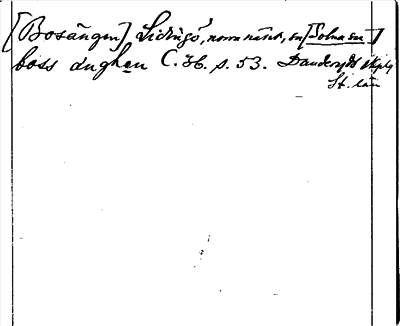 [Bosängen] Lidingö, norra nånd, en [Solna sn]
boss ænghen C. 36. s. 53. Danderyds skplg
St. län